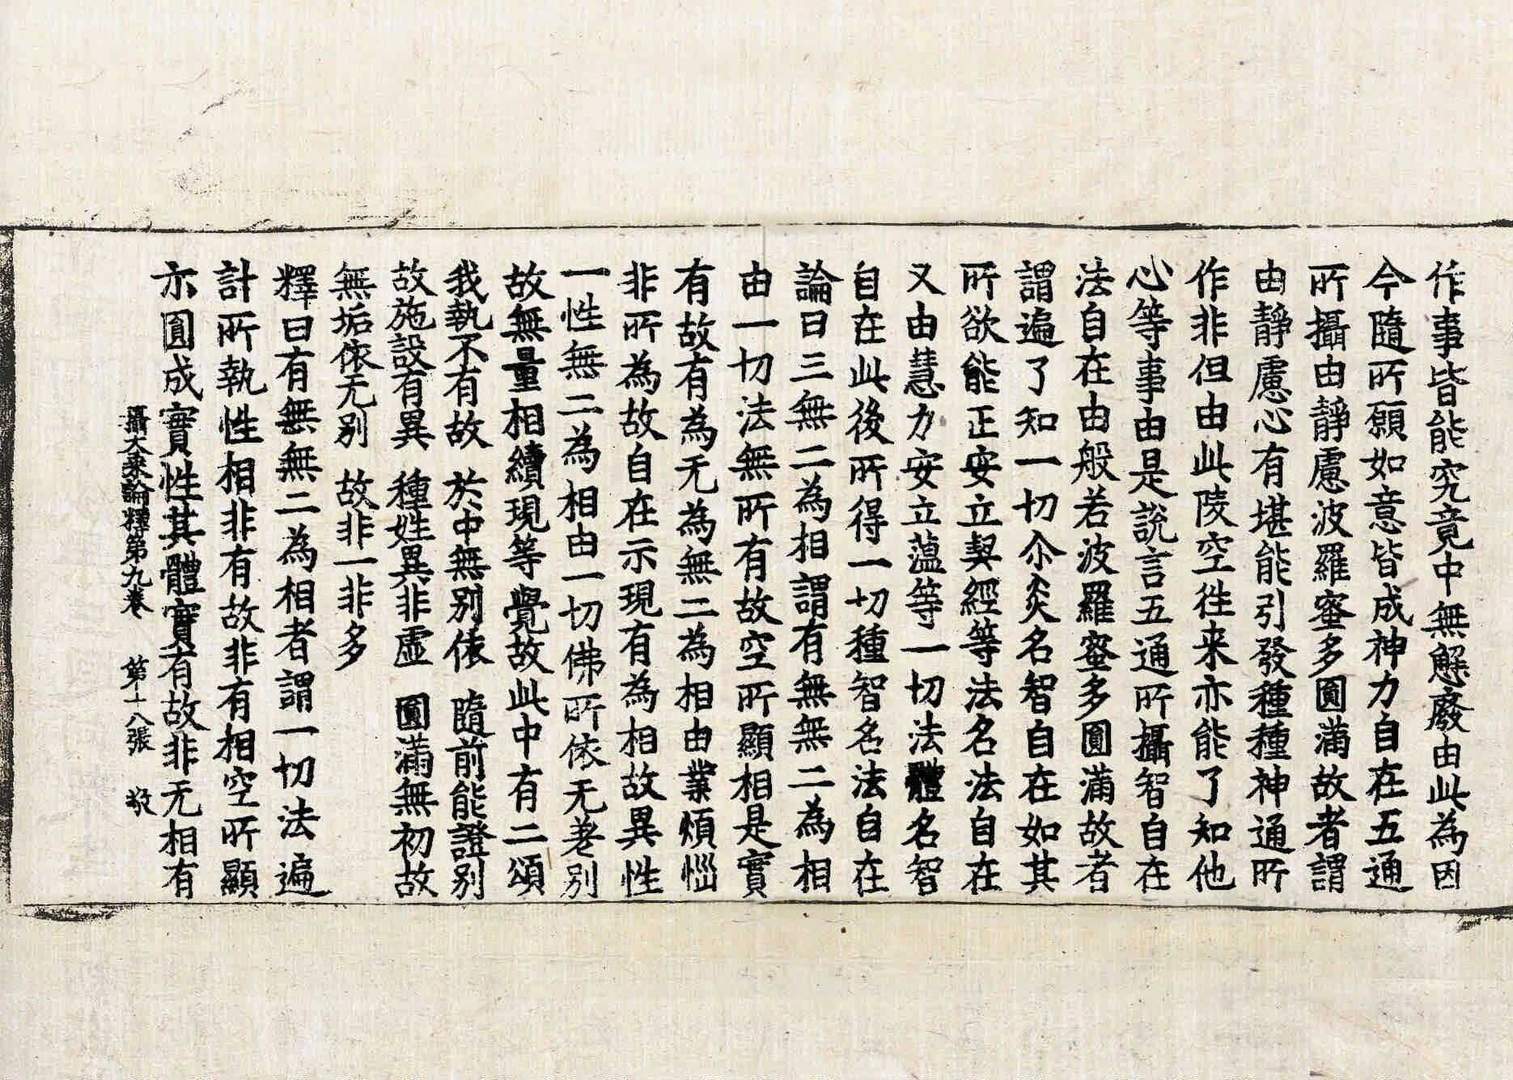 作事皆能究竟中無懈廢由此為因
今隨所願如意皆成神力自在五通
所攝由靜慮波羅蜜多圓滿故者謂
由靜慮心有堪能引發種種神通所
作非但由此陵空往来亦能了知他
心等事由是說言五通所攝智自在
法自在由般若波羅蜜多圓滿故者
謂遍了知一切尒炎名智自在如其
所欲能正安立契經等法名法自在
又由慧力安立薀等一切法體名智
自在此後所得一切種智名法自在
論曰三無二為相謂有無無二為相
由一切法無所有故空所顯相是實
有故有為无為無二為相由業煩惱
非所為故自在示現有為相故異性
一性無二為相由一切佛所依无差別
故無量相續現等覺故此中有二頌
我執不有故 於中無別依 隨前能證別
故施設有異 種姓異非虛 圓滿無初故
無垢依无別 故非一非多
釋曰有無無二為相者謂一切法遍
計所執性相非有故非有相空所顯
亦圓成實性其體實有故非无相有
攝大乘論釋第九卷 第十八張